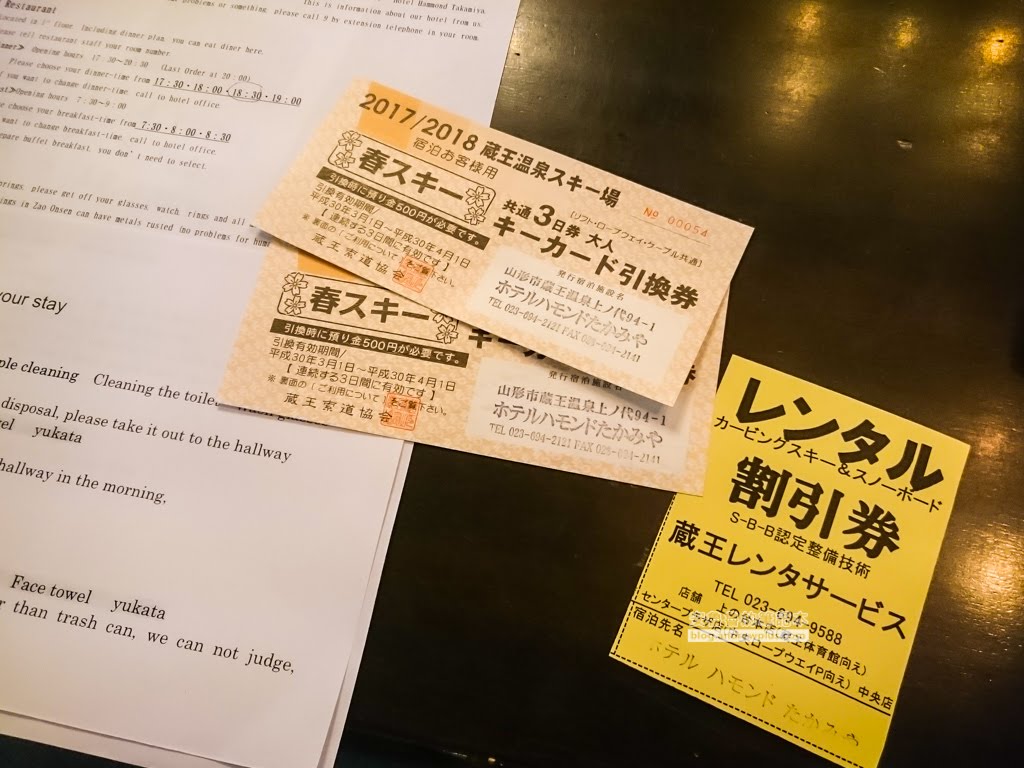 Restaurant
Located in 1st floor. Including dinner plan, you can eat diner here.
Please tell restaurant staff your room number.
Opening hours 17:30~20:30 (Last Order at 20:00)
Please choose your dinner-time from 17:30・18:00・18:30・19:00
you want to change dinner-time, call to hotel office.
Opening hours 7:30~9:00
choose your breakfast-time from 7:30・8:00・8:30
want to change breakfast-time, call to hotel office.
prepare buffet breakfast, you don't need to select.
problems or something, please call 9 by extension telephone in your room.
This is information about our hotel from us.
Hotel Hammond Takamiya
please get off your glasses, watch, rings and all
in Zao Onsen can have metals rusted (no problems for
your stay
cleaning Cleaning the toilet
disposal, please take it out to the hallway
yukata
hallway in the morning,
Face towel yukata
than trash can, we can not judge,
2017/2018 蔵王温泉スキー場
宿泊お客様用
春スキー
引換時に預り金500円が必要です。
引換有効期間/
平成30年3月1日~平成30年4月1日
【連続する3日間に有効です】
※裏面の「ご利用について」をご覧下さい。
蔵王索道協会
No 00054
共通3日券 大人 (リフト・ロープウェイ・ケーブル共通)
キーカード引換券
発行宿泊施設名
山形市蔵王温泉上ノ代94-1
ホテルハモンドたかみや
TEL 023-694-2121 FAX 023-694-2141
春スキー
引換時に預り金500円が必要です。
引換有効期間/
平成30年3月1日~平成30年4月1日
【連続する3日間に有効です】
※裏面の「ご利用について」をご覧下さい。
蔵王索道協会
発行宿泊施設名
山形市蔵王温泉上ノ代94-1
ホテルハモンドたかみや
TEL 023-694-2121 FAX 023-694-2141
レンタル
カービングスキー&スノーボード
割引券
S-B-B認定整備技術
蔵王レンタサービス
TEL 023-694-9588
店舗 上の台本店 体育館向え)
センタープラザ店 ロープウェイP向え) 中央店
宿泊先名
ホテル ハモンド たかみや